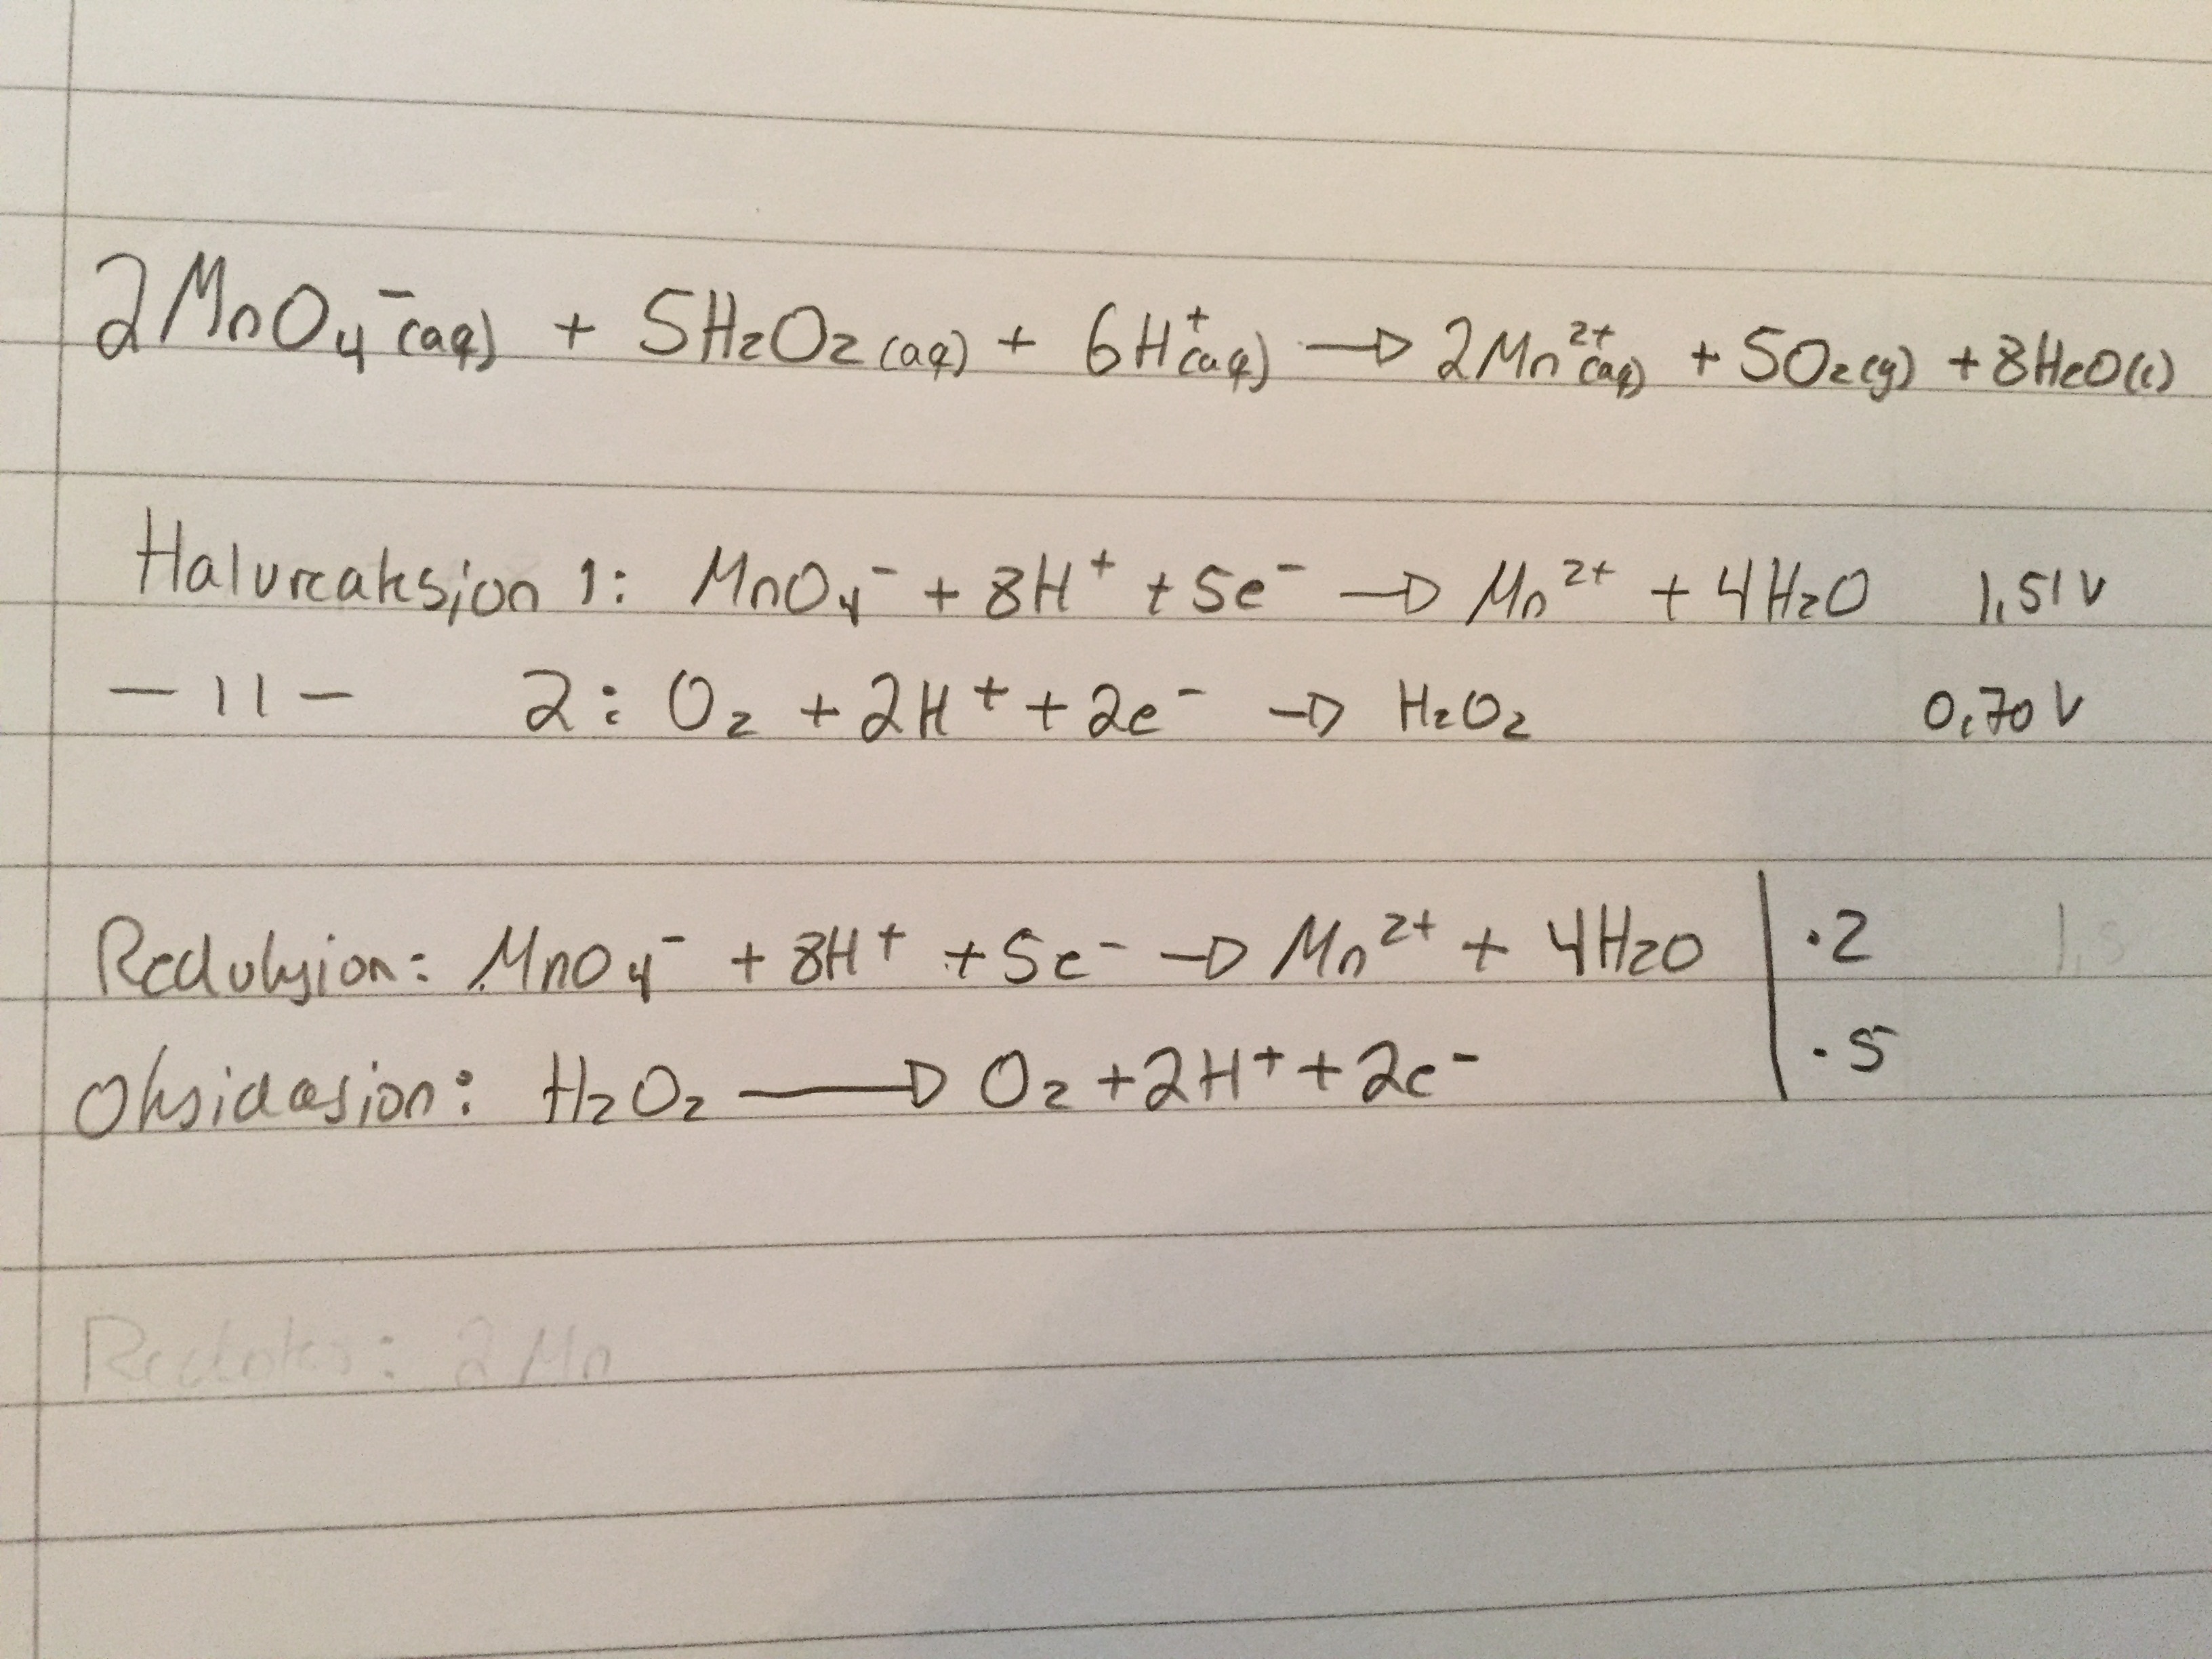 2MnO₄⁻(aq) + 5H₂O₂(aq) + 6H⁺(aq) → 2Mn²⁺(aq) + 5O₂(g) + 8H₂O(l)
Halvreaksjon 1: MnO₄⁻ + 8H⁺ + 5e⁻ → Mn²⁺ + 4H₂O 1,51 V
— 11 — 2: O₂ + 2H⁺ + 2e⁻ → H₂O₂ 0,70 V
Reduksjon: MnO₄⁻ + 8H⁺ + 5e⁻ → Mn²⁺ + 4H₂O | ·2
Oksidasjon: H₂O₂ → O₂ + 2H⁺ + 2e⁻ | ·5
2Mn